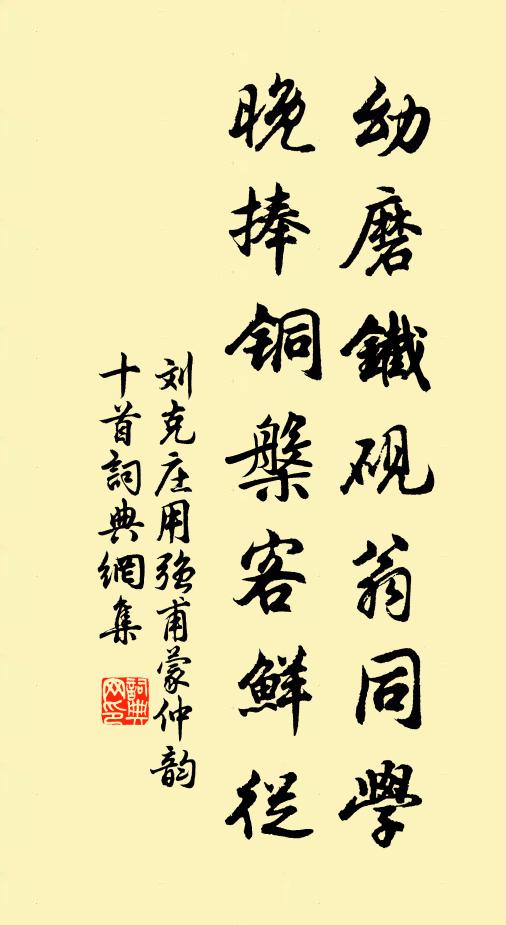 幼磨鐵硯翁同學
晚捧銅槃客鮮從
刘克庄用强甫蒙仲韵
十首詞典網集
詞典网印